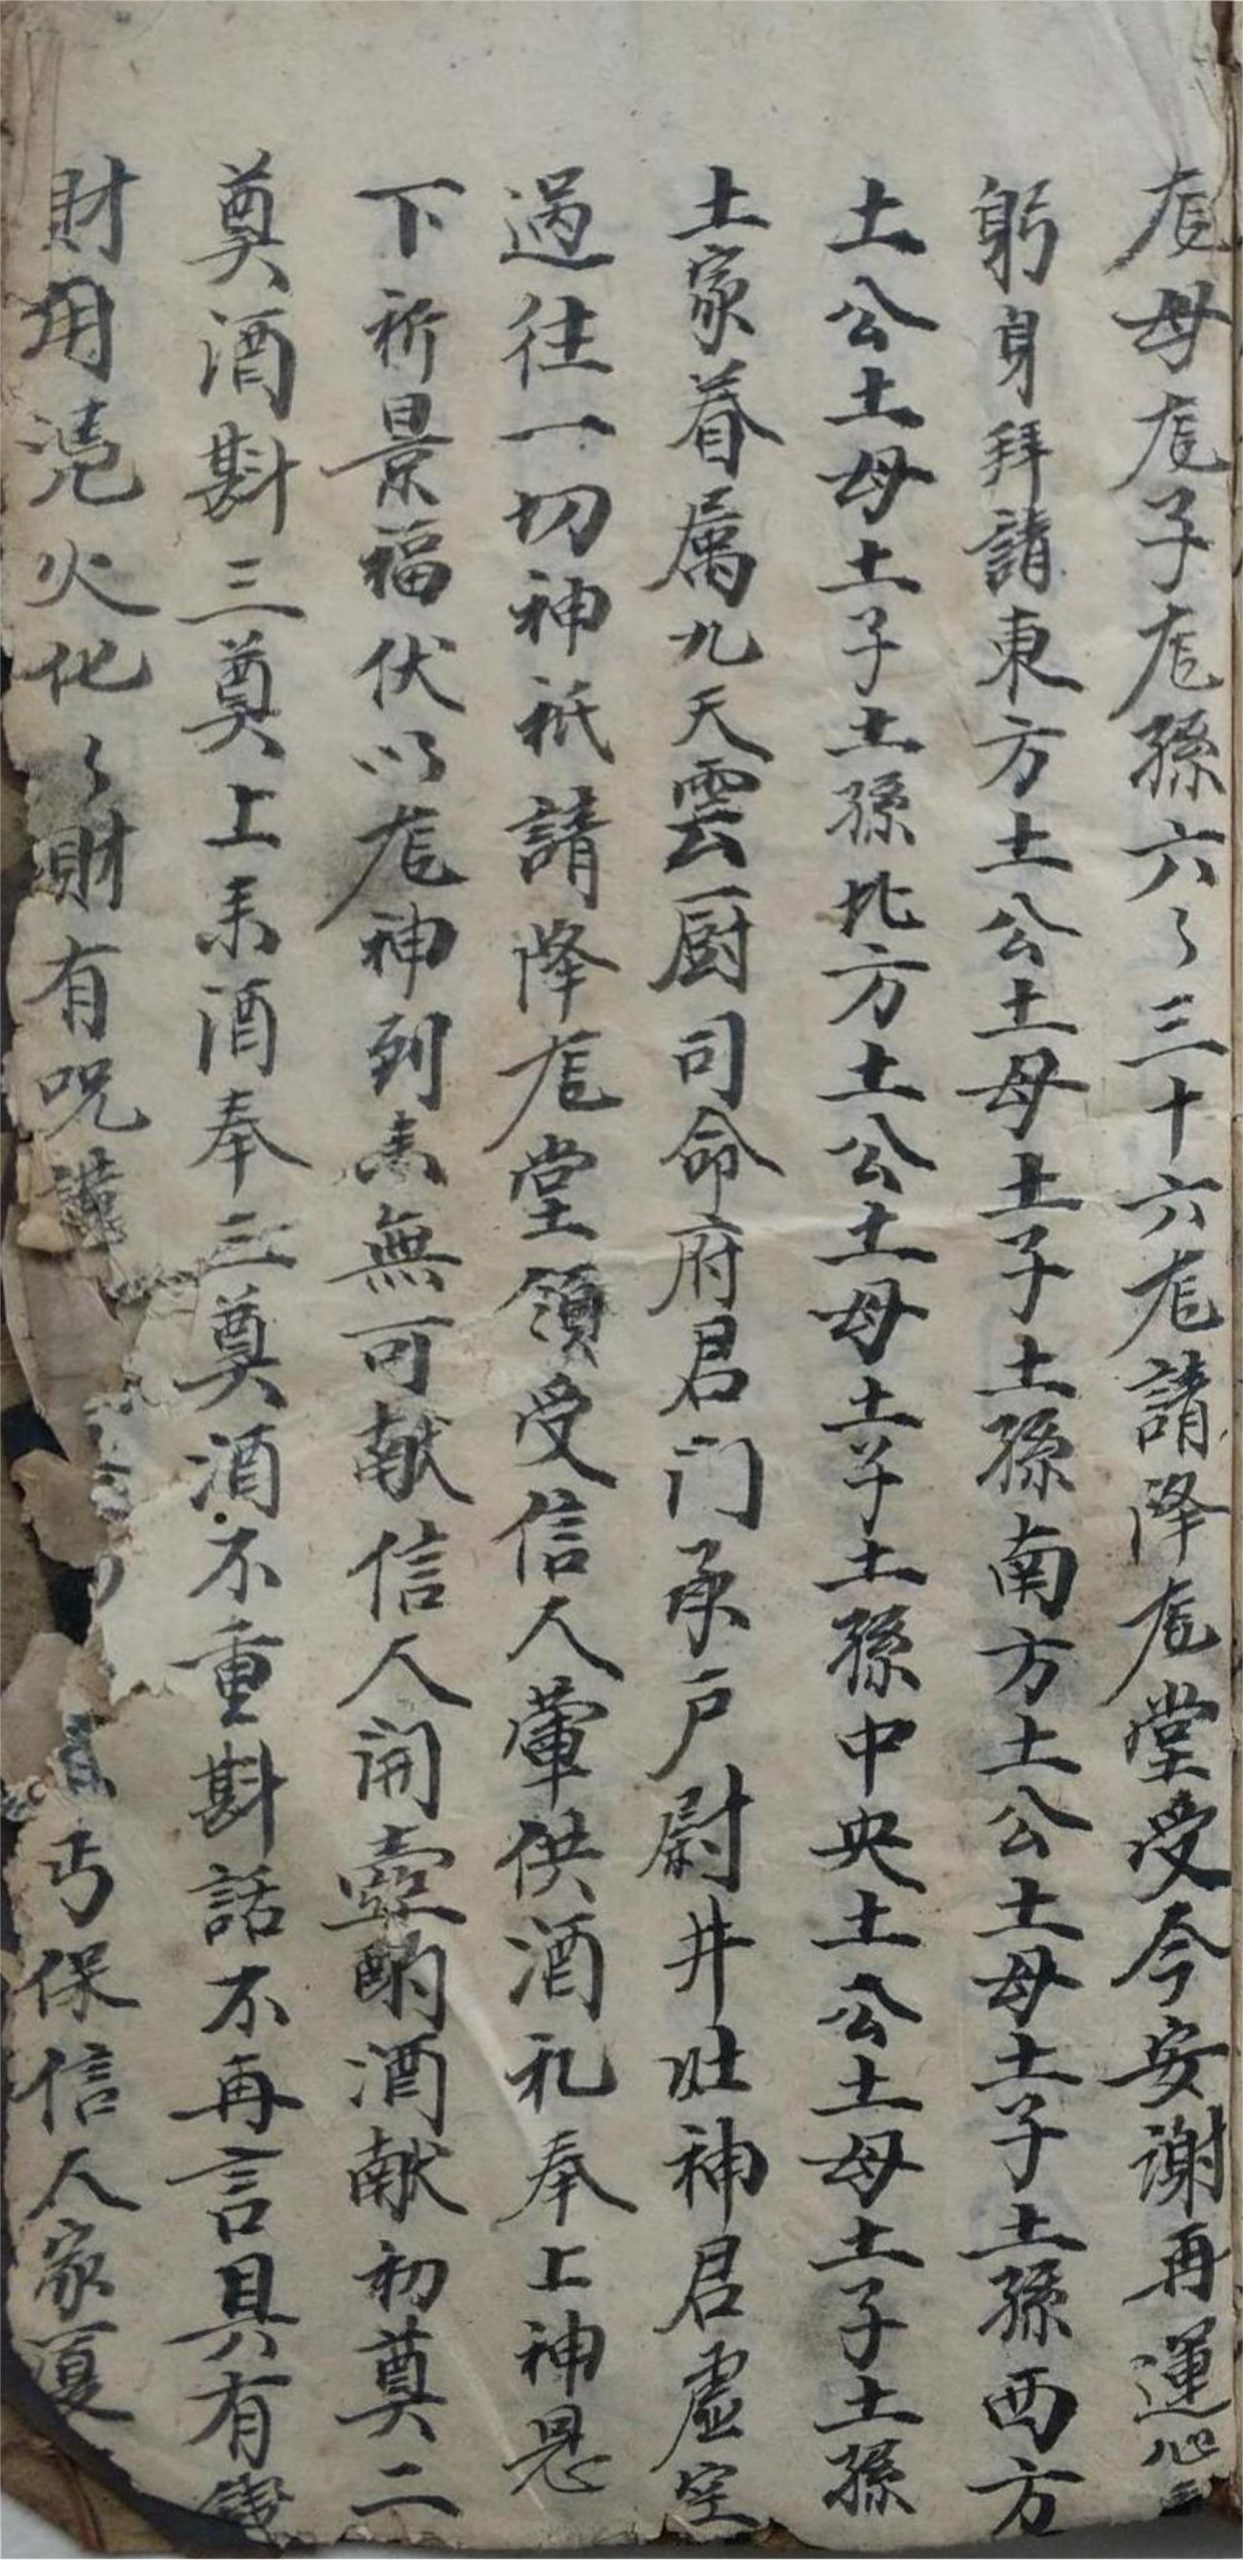 庅母庅子庅孫六々三十六庅請降庅堂受今安謝再運心
躬身拜請東方土公土母土子土孫南方土公土母土子土孫西方
土公土母土子土孫北方土公土母土子土孫中央土公土母土子土孫
土家眷属九天雲厨司命府君门承户尉井灶神君虚空
過往一切神祇請降庅堂領受信人葷供酒礼奉上神恩
下祈景福伏以庅神列未無可献信人開壺酌酒献初奠二
奠酒斟三奠上来酒奉三奠酒不重斟話不再言具有
財用凴火化々財有咒謹
丐保信人家厦